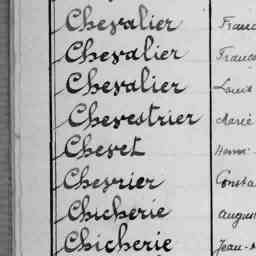 Chevalier Franc
Chevalier Franço
Chevalier Louis
Chevestrier Marie
Chevet Henri
Chevrier Consta
Chicherie August
Chicherie Jean-